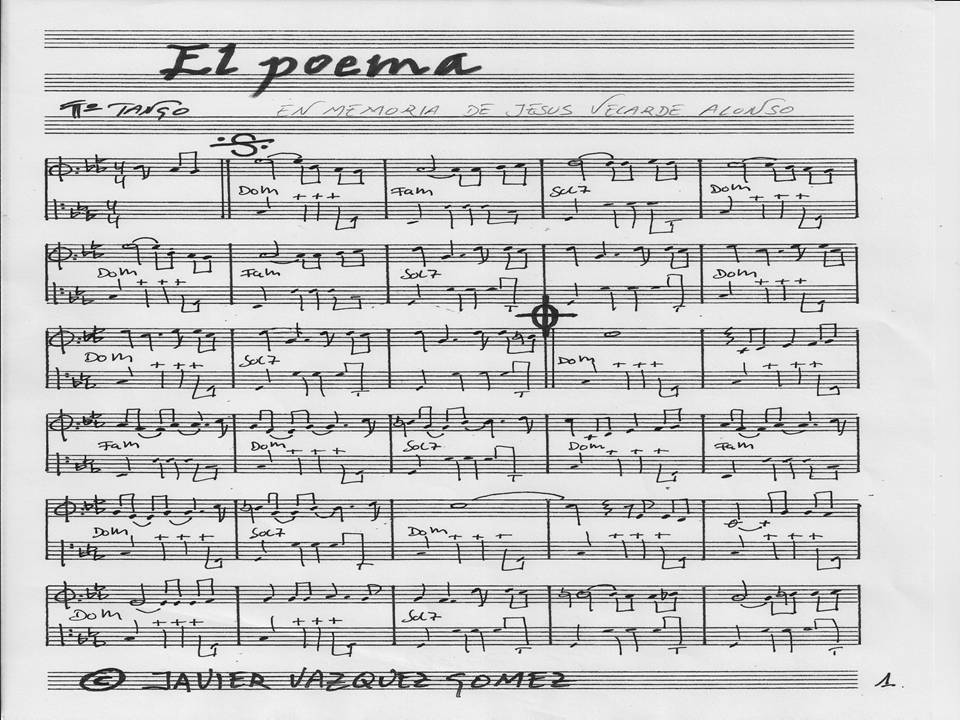 El poema
Tº TANGO EN MEMORIA DE JESUS VELARDE ALONSO
4 4
Dom Fam Sol7 Dom
4 4
Dom Fam Sol7 Dom
Dom Sol7 Dom
Fam Dom Sol7 Dom Fam
Dom Sol7 Dom
Dom Sol7
© JAVIER VAZQUEZ GOMEZ 1